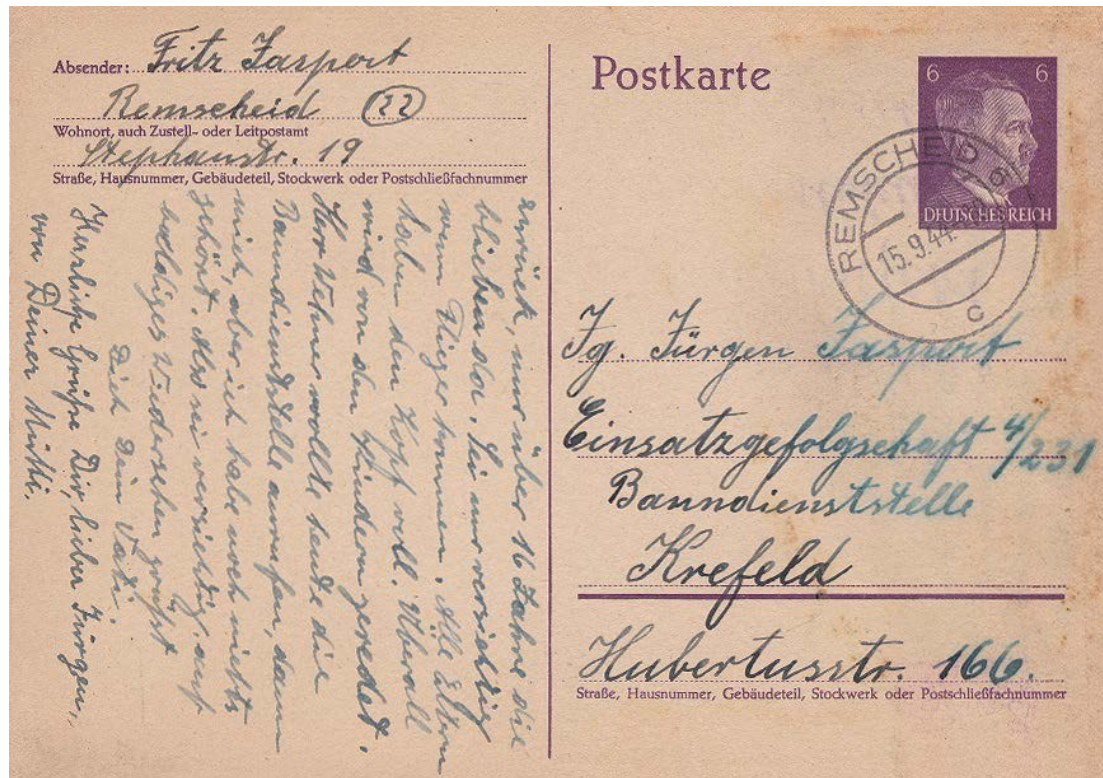 Absender: Fritz Jasport
Remscheid (22)
Wohnort, auch Zustell- oder Leitpostamt
Stephanstr. 19
Straße, Hausnummer, Gebäudeteil, Stockwerk oder Postschließfachnummer
zurück, nur über 16 Jahre die
bleiben da. Sei nur vorsichtig
wenn Flieger kommen. Alle Eltern
haben den Kopf voll. Überall
wird von den Kindern geredet.
Herr Wehner wollte heute die
Banndienststelle anrufen, dann
mich, aber ich habe noch nichts
gehört. Also sei vorsichtig, auf
baldiges Wiedersehen grüßt
Dich Dein Vati.
Herzliche Grüße Dir, lieber Jürgen,
von Deiner Mutti.
Postkarte
6 6
DEUTSCHES REICH
REMSCHEID
15.9.44
c
Jg. Jürgen Jasport
Einsatzgefolgschaft 4/231
Banndienststelle
Krefeld
Hubertusstr. 166.
Straße, Hausnummer, Gebäudeteil, Stockwerk oder Postschließfachnummer